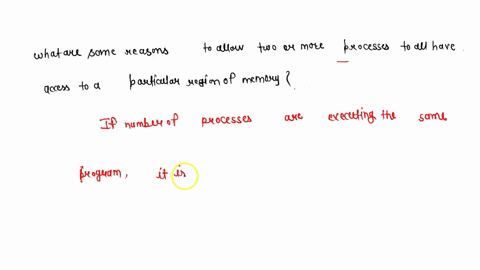 what are some reasons to allow two or more processes to all have
access to a particular region of memory?
If number of processes are executing the same
program, it is